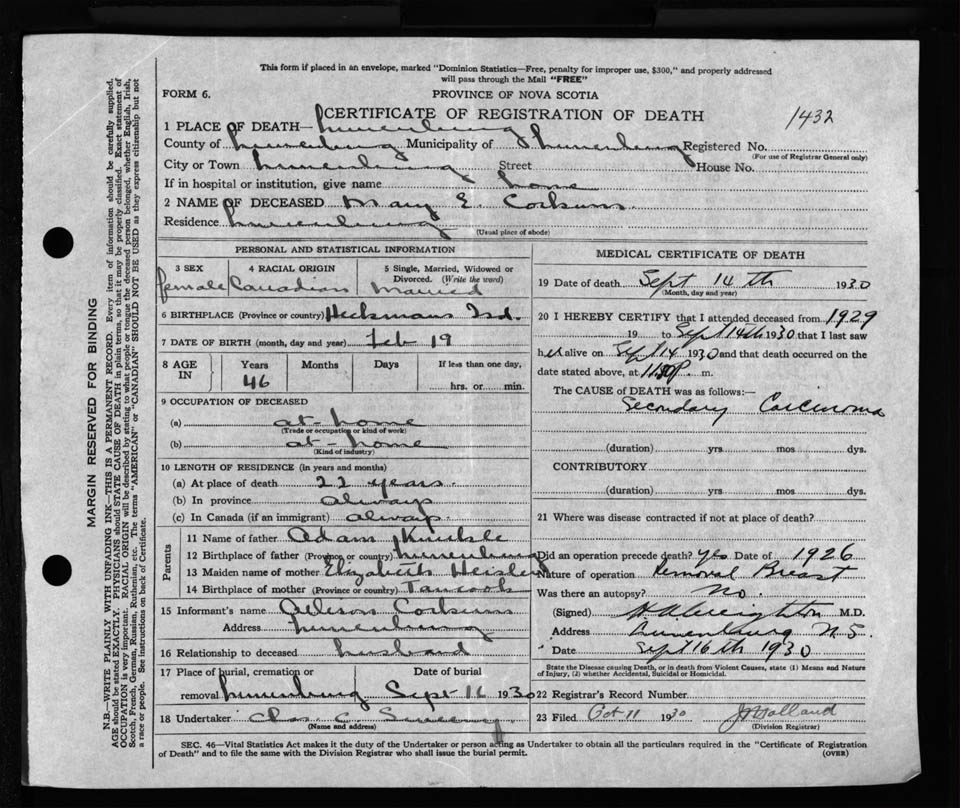 This form if placed in an envelope, marked "Dominion Statistics—Free, penalty for improper use, $300," and properly addressed
will pass through the Mail "FREE"
FORM 6.
PROVINCE OF NOVA SCOTIA
CERTIFICATE OF REGISTRATION OF DEATH
1432
1 PLACE OF DEATH— Lunenburg
County of Lunenburg Municipality of Lunenburg Registered No.
(For use of Registrar General only)
City or Town Lunenburg Street House No.
If in hospital or institution, give name home
2 NAME OF DECEASED Mary E. Corkum
Residence Lunenburg
(Usual place of abode)
PERSONAL AND STATISTICAL INFORMATION
3 SEX 4 RACIAL ORIGIN 5 Single, Married, Widowed or
Divorced. (Write the word)
female Canadian Married
6 BIRTHPLACE (Province or country) Heckmans Isd.
7 DATE OF BIRTH (month, day and year) Feb 19
8 AGE IN Years Months Days If less than one day,
46 hrs. or min.
9 OCCUPATION OF DECEASED
(a) at-home
(Trade or occupation or kind of work)
(b) at-home
(Kind of industry)
10 LENGTH OF RESIDENCE (in years and months)
(a) At place of death 22 years
(b) In province always
(c) In Canada (if an immigrant) always
Parents
11 Name of father Adam
12 Birthplace of father (Province or country) Lunenburg
13 Maiden name of mother Elizabeth Heisler
14 Birthplace of mother (Province or country) Tancook
15 Informant's name Corkum
Address Lunenburg
16 Relationship to deceased husband
17 Place of burial, cremation or Date of burial
removal Lunenburg Sept 16 1930
18 Undertaker Chas. C.
(Name and address)
MEDICAL CERTIFICATE OF DEATH
19 Date of death Sept 14th 1930
(Month, day and year)
20 I HEREBY CERTIFY that I attended deceased from 1929
19 to Sept 14th 1930 that I last saw
her alive on Sept 14 1930 and that death occurred on the
date stated above, at m.
The CAUSE of DEATH was as follows:—
Secondary Carcinoma
(duration) yrs mos dys.
CONTRIBUTORY
(duration) yrs mos dys.
21 Where was disease contracted if not at place of death?
Did an operation precede death? yes Date of 1926
Nature of operation Removal Breast
Was there an autopsy? No.
(Signed) M.D.
Address Lunenburg N.S.
Date Sept 16th 1930
State the Disease causing Death, or in death from Violent Causes, state (1) Means and Nature
of Injury, (2) whether Accidental, Suicidal or Homicidal.
22 Registrar's Record Number
23 Filed Oct 11 1930
(Division Registrar)
SEC. 46—Vital Statistics Act makes it the duty of the Undertaker or person acting as Undertaker to obtain all the particulars required in the "Certificate of Registration
of Death" and to file the same with the Division Registrar who shall issue the burial permit.
(OVER)
MARGIN RESERVED FOR BINDING
N.B.—WRITE PLAINLY WITH UNFADING INK—THIS IS A PERMANENT RECORD. Every item of information should be carefully supplied.
AGE should be stated EXACTLY. PHYSICIANS should STATE CAUSE OF DEATH in plain terms, so that it may be properly classified. Exact statement of
OCCUPATION is very important. RACIAL ORIGIN will be described by stating to what people or tongue the deceased person belonged, whether English, Irish,
Scotch, French, German, Russian, Ruthenian, etc. The terms "AMERICAN" or "CANADIAN" SHOULD NOT BE USED as they express citizenship but not
a race or people. See instructions on back of Certificate.